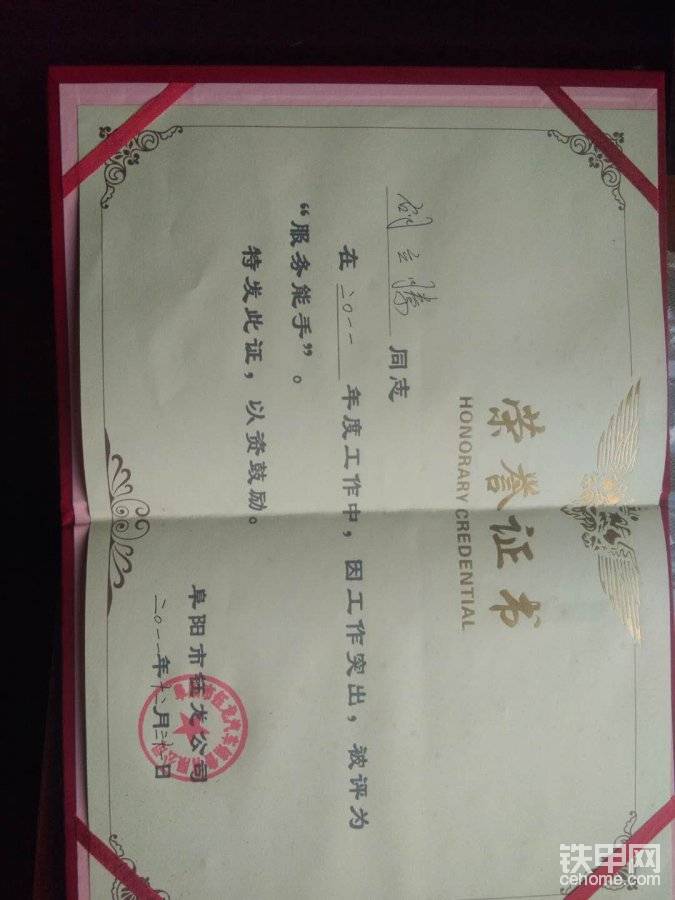 荣誉证书
HONORARY CREDENTIAL
刘立腾 同志
在二〇一一年度工作中，因工作突出，被评为
“服务能手”。
特发此证，以资鼓励。
阜阳市钰龙公司
二〇一一年十二月二十二日
铁甲网
cehome.com